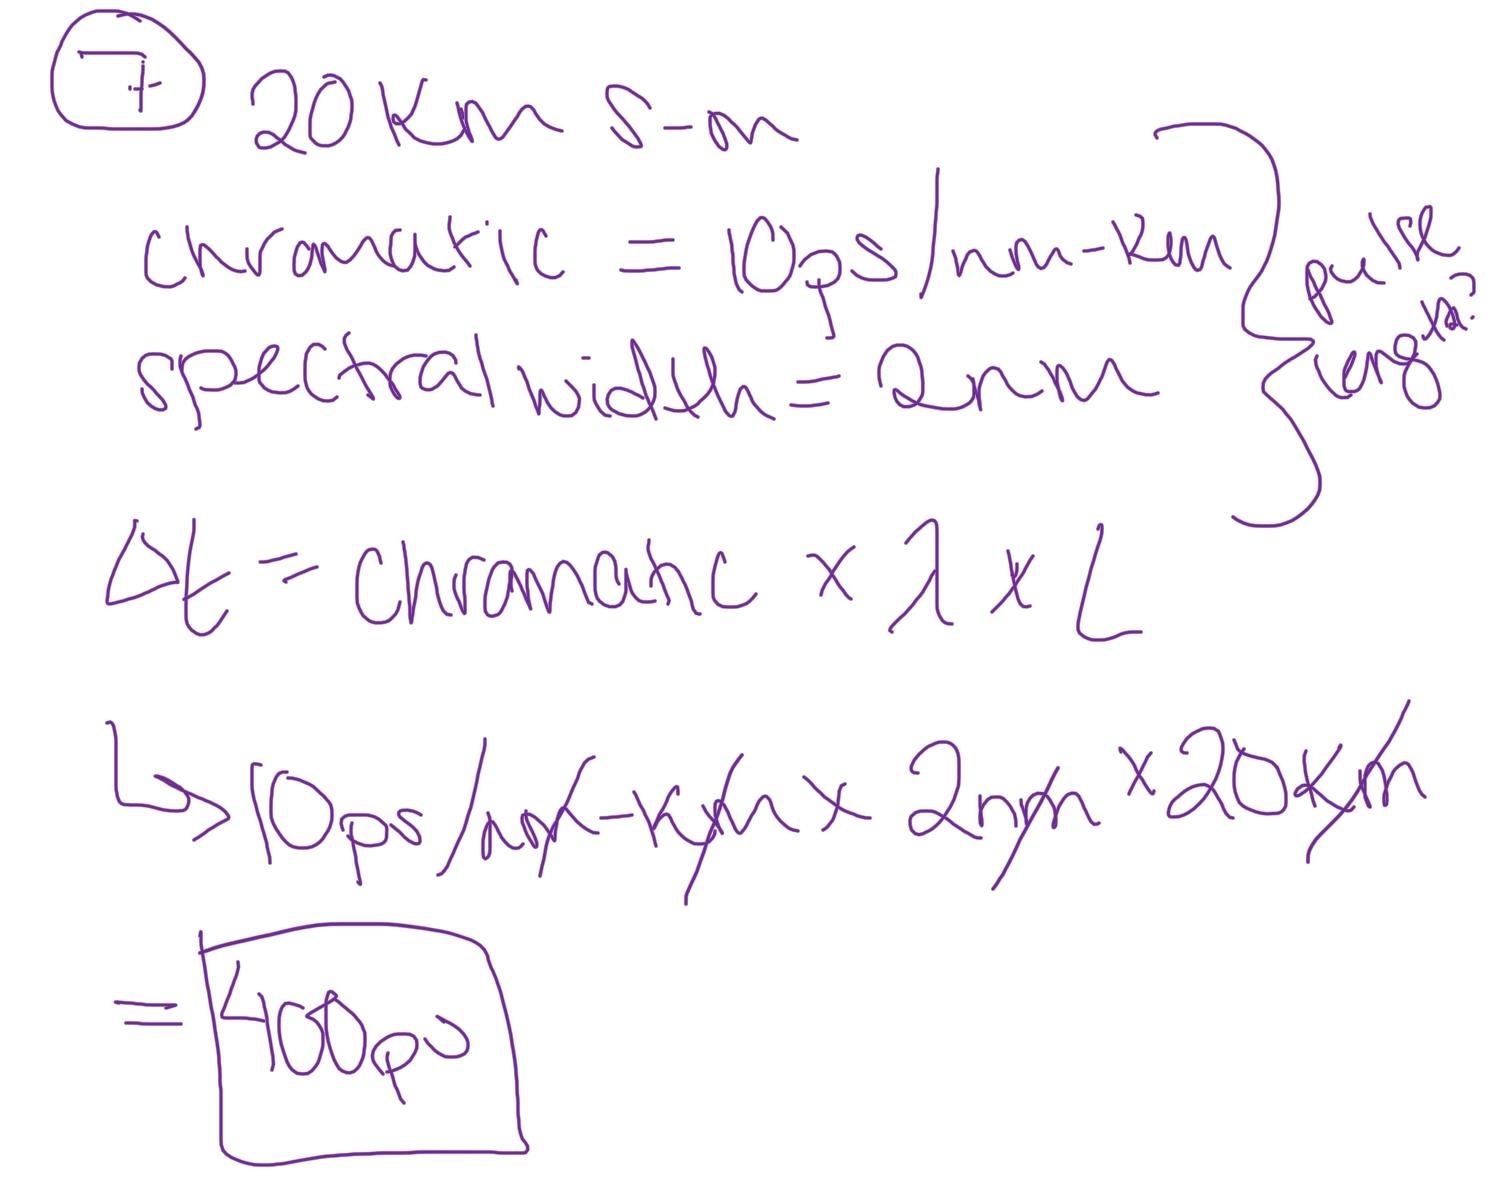 7
20Km S-m
chromatic = 10ps/nm-km
spectral width = 2nm
pulse
length?
Δt = chromatic × λ × L
↳ 10ps/nm-km × 2nm × 20km
= 400ps